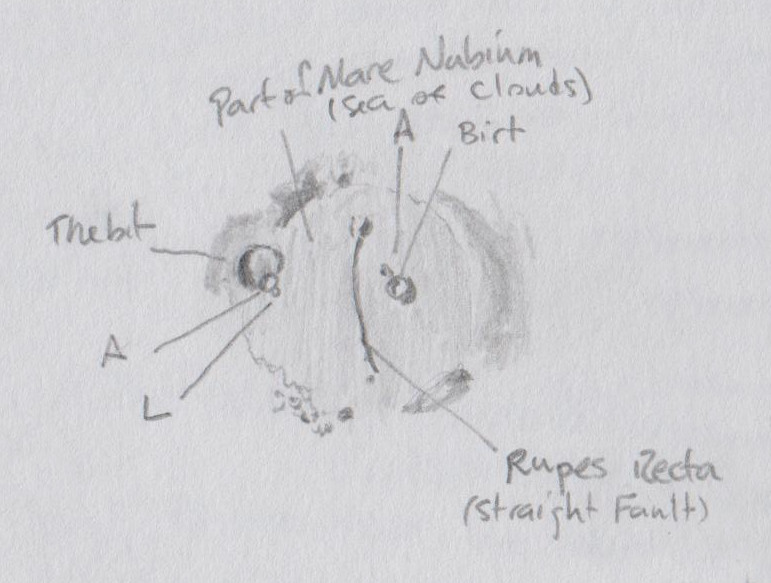 Part of Mare Nubium
(Sea of Clouds)
A
Birt
Thebit
A
L
Rupes Recta
(Straight Fault)